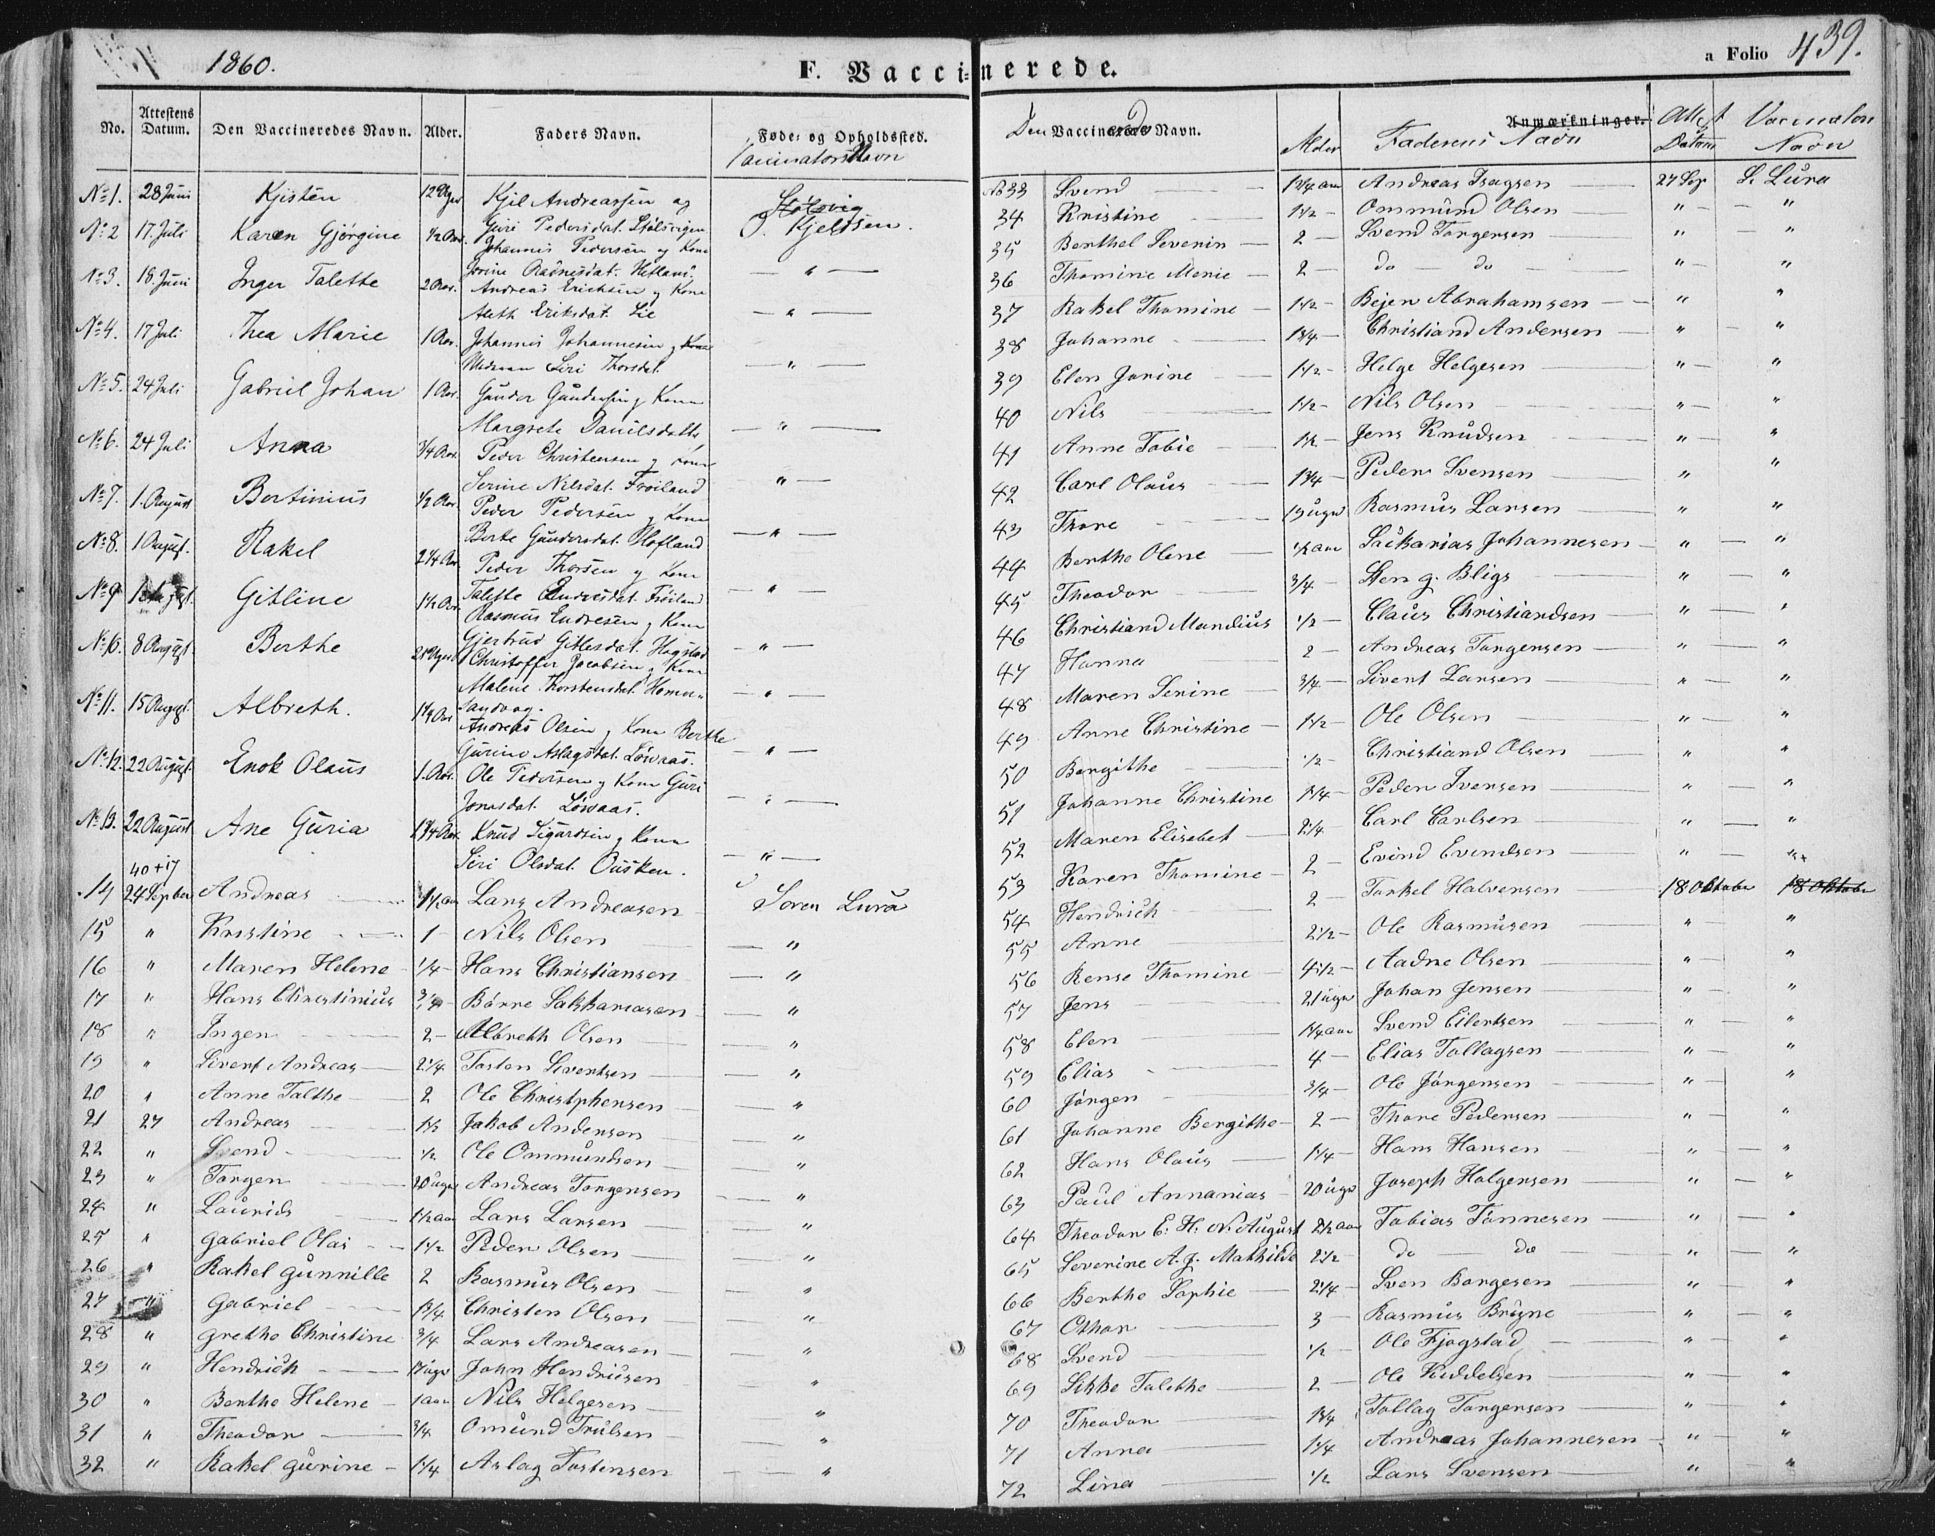 1860.
F. Vaccinerede.
a Folio 439.
No. Attestens Datum. Den Vaccineredes Navn. Alder. Faders Navn. Føde- og Opholdssted.
Vaccinators Navn
Den Vaccinerede Navn. Alder Anmærkninger. Faderens Navn Attest Datum Navn
No 1. 28 Juni Kjisten 12 Kjel Andreassen og
No 2 17. Juli Karen Gjørgine 1/2 Aar. Guri Pedersdat. Kjeldsen.
Johannes Pedersen og Kone
No 3. 18. Juni Inger Talette 2 Aar. — " —
Andreas Ericksen og Kone
Aleth Eriksdat. Lie — " —
No 4. 17 Juli Thea Marie 1 Aar. Johannes Johannesen og Kone
Siri Thorsdat. — " —
No 5. 24 Juli Gabriel Johan 1 Aar. Gunder Gundersen og Kone
Margrete Danielsdatter — " —
No 6. 24 Juli Anna 3/4 Aar. Peder Christensen og Kone
Serine Nilsdat. Frøiland — " —
No 7. 1. August Bertinius 1/2 Aar. Peder Pedersen og Kone
Berte Gundersdat. Hofland — " —
No 8. 1 August. Rakel 2 1/4 Aar Peder Thorsen og Kone
Talette Endresdat. Frøiland — " —
No 9 Gitline 1 1/2 Aar Rasmus Endresen og Kone
Gjertrud Gitlesdat. Hogstad — " —
No 10. 8 August. Berthe 21 Uger Christoffer Jacobsen og Kone
Malene Thorstensdat. Homer- — " —
sandvag.
No 11. 15 August. Albreth. 1 1/4 Aar Andreas Olsen og Kone Berthe
Gurine Aslagsdat. Løvaas. — " —
No 12. 22 August. Enok Olaus 1. Aar. Ole Pedersen og Kone Guri
Jonasdat. Løvaas. — " —
No 13. 22 August Ane Guria 1 3/4 Aar. Knud Sigurdsen og Kone
Siri Olsdat. Ousken. — " —
40+17
14 24 September Andreas 1 1/2 aar Lars Andreasen Søren Lura
15 " Kristine 1 — Nils Olsen — "
16 " Maren Helene 1/4 — Hans Christiansen — "
17 " Hans Christinius 3/4 — Børre Sakkariasen — "
18 " Inger 2 — Albreth Olsen — "
19 " Sivert Andreas 2 1/4 Tosten Sivertsen — "
20 " Anne Talthe 2 Ole Christphersen — "
21 27 Andreas 1 1/2 Jakob Andersen — "
22 " Svend 1/2 Ole Ommundsen — "
23 " Torger 20 uger Andreas Torgersen — "
24 " Laurids 1 1/2 aar Lars Larsen — "
25 " Gabriel Olai 1 1/2 Peder Olsen — "
26 " Rakel Gunnille 2 Rasmus Olsen — "
27 " Gabriel 1 3/4 Christen Olsen — "
28 " Grethe Christine 3/4 Lars Andreasen — "
29 " Hendrich 17 uger John Hendriksen "
30 " Berthe Helene 1 aar Nils Helgesen — "
31 " Theodor 3/4 Omund Trulsen — "
32 " Rakel Gurine 1 1/4 Aslag Tostensen — "
No 33 Svend 1 3/4 aar Andreas Tsagsen 27 Sep S. Lura
34 Kristine 1 1/2 — Ommund Olsen " — "
35 Berthel Severin 2 — Svend Torgersen " — "
36 Thomine Merie 2 — do — do — " — "
37 Rakel Thomine 1 1/2 — Bejer Abrahamsen " "
38 Johanne 1 3/4 — Christiand Andersen " — "
39 Elen Jorine 1 1/2 — Helge Helgesen " — "
40 Nils 1 1/2 — Nils Olsen " — "
41 Anne Tobie 1 1/2 — Jens Knudsen " — "
42 Carl Olaus 1 3/4 — Peder Svensen " "
43 Thore 19 uger Rasmus Larsen " "
44 Berthe Olene 1/2 aar Sackarias Johannesen " — "
45 Theodor 3/4 — Sten G. Bligs " — "
46 Christiand Mandius 1/2 — Claus Christiandsen " — "
47 Hanna 2 — Andreas Torgersen " — "
48 Maren Serine 3/4 — Sivert Larsen " — "
49 Anne Christine 1 1/2 Ole Olsen " — "
50 Bergithe 1/2 — Christiand Olsen " "
51 Johanne Christine 1 1/4 — Peder Iversen " — "
52 Maren Elisebet 2 1/4 — Carl Carlsen " — "
53 Karen Thomine 2 — Evind Evindsen " — "
54 Hendrich 2 — Torkel Halvorsen 18 Oktober 18 Oktober
55 Anne 2 1/2 — Ole Rasmusen " "
56 Rense Thomine 4 1/2 — Aadne Olsen " — "
57 Jens 21 uger Johan Jensen " — "
58 Elen 1 1/4 aar Svend Eilertsen " — "
59 Elias 4 — Elias Tollagsen " — "
60 Jørgen 3/4 — Ole Jørgensen " — "
61 Johanne Bergithe 2 — Thore Pedersen " — "
62 Hans Olaus 1 1/4 — Hans Hansen " — "
63 Paul Annanias 20 uger Joseph Holgersen " — "
64 Theodor E. H. N. August 2 1/2 aar Tobias Tønnesen " — "
65 Severine A. J. Mathilde 2 1/2 do — do " — "
66 Berthe Sophie 2 1/4 — Sven Borgesen " — "
67 Othar 3 — Rasmus Bryne " — "
68 Svend 1/2 — Ole Fjogstad " — "
69 Sikke Talethe 2 — Ole Kiddelsen " — "
70 Theodor 1 3/4 Tollag Torgersen " — "
71 Anna 1 1/4 Andreas Johannesen " — "
72 Lina 1/2 Lars Svensen " — "